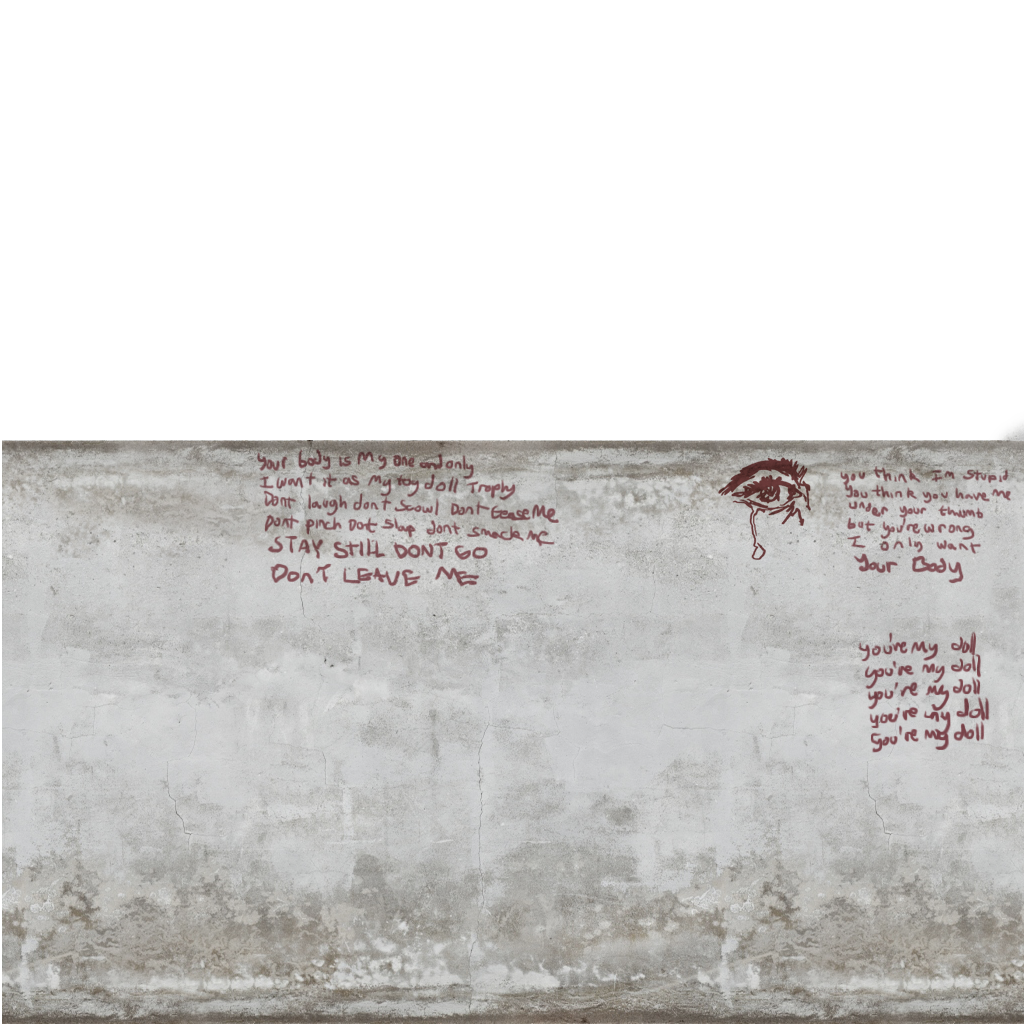 Your body is My one and only
I want it as My toy doll Trophy
Dont laugh dont Scowl Dont tease Me
Dont pinch Dot Slap dont smack me
STAY STILL DONT GO
DONT LEAVE ME
you think Im Stupid
You think you have me
under your thumb
but you're wrong
I only want
Your Body
you're My doll
you're my doll
you're my doll
you're my doll
you're my doll